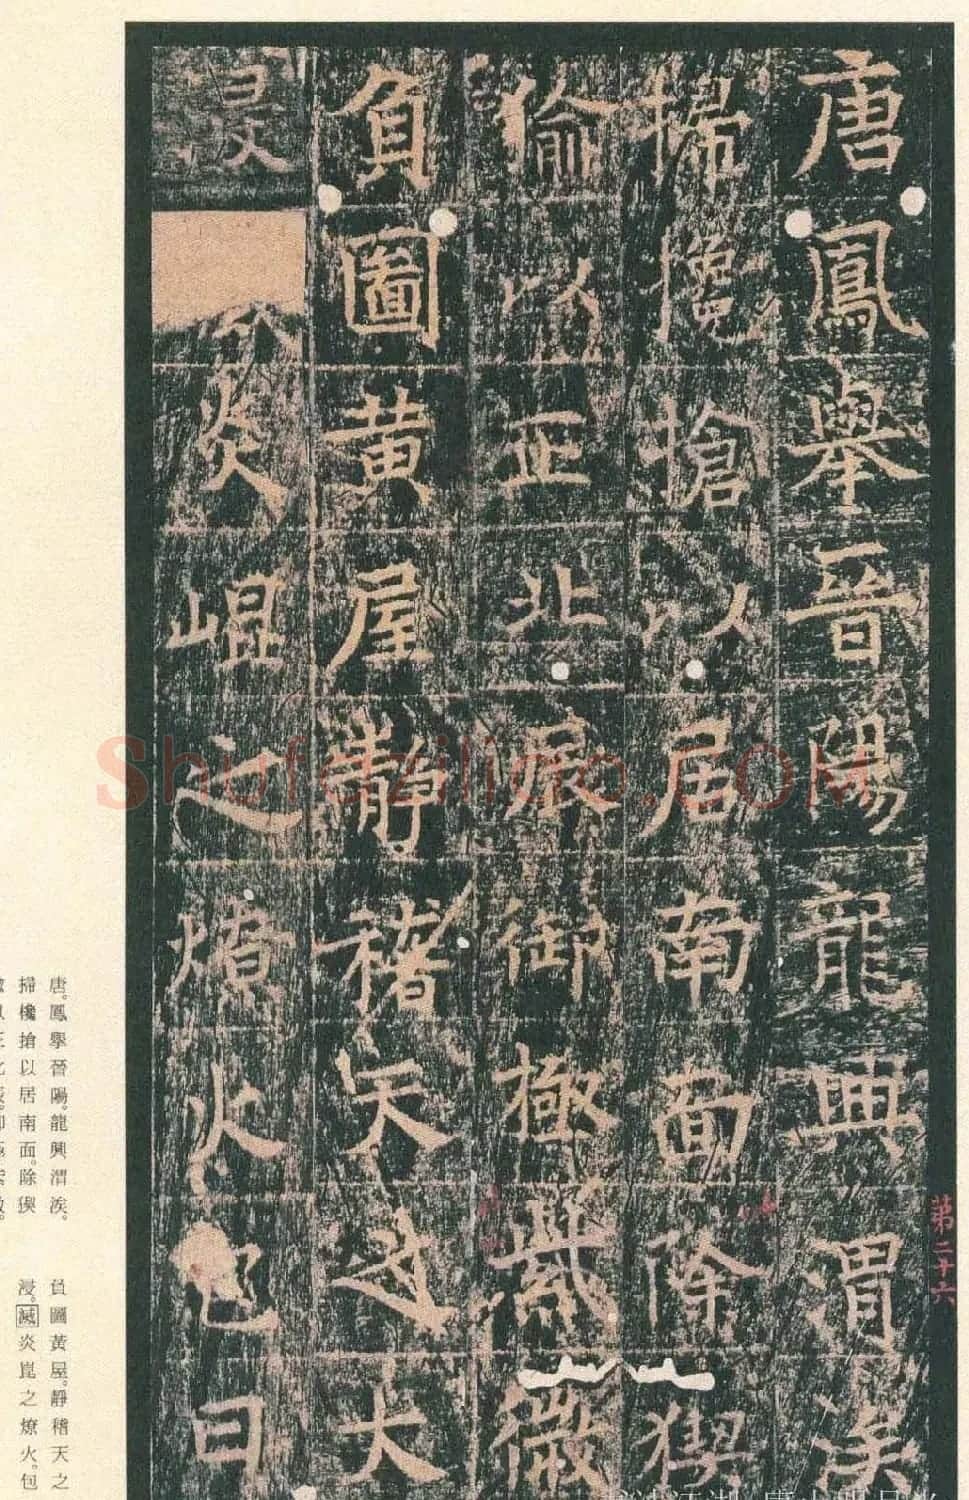 唐鳳舉晉陽龍興渭涘
掃欃搶以居南面除猰
㺄以正北辰御極紫微
負圖黃屋靜稽天之大
浸炎崐之燎火包日
第二十六
唐。鳳舉晉陽。龍興渭涘。
掃欃搶以居南面。除猰
負圖黃屋。靜稽天之
浸。滅炎崑之燎火。包
Shufaziliao.COM